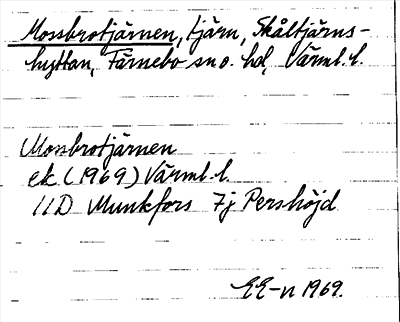 Mossbrotjärnen, tjärn, Skåltjärns-
hyttan, Färnebo sn o. hd, Värml. l.
Mossbrotjärnen
ek. (1969) Värml. l.
11D Munkfors 7j Pershöjd
EE-n 1969.